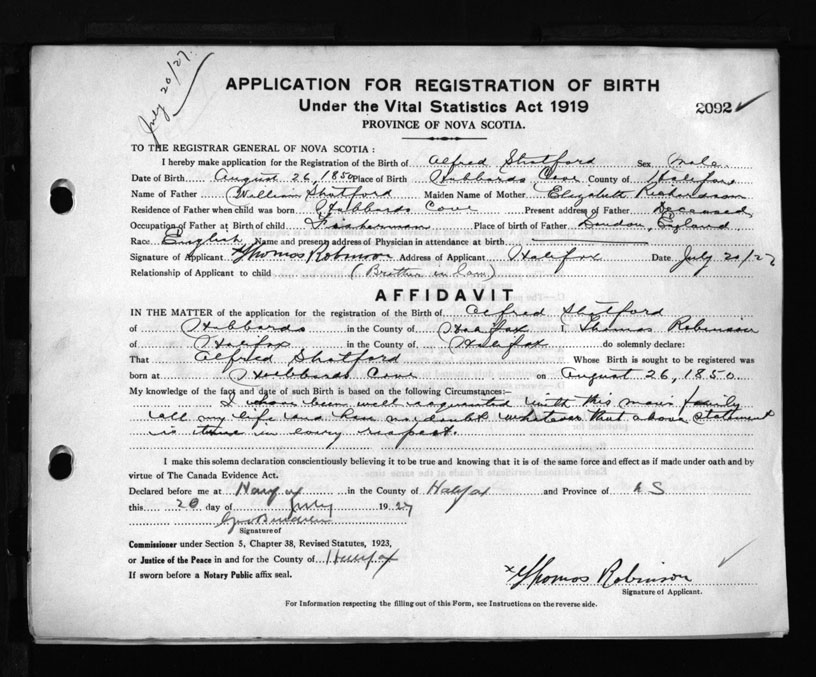 July 20/27.
APPLICATION FOR REGISTRATION OF BIRTH
Under the Vital Statistics Act 1919
2092
PROVINCE OF NOVA SCOTIA.
TO THE REGISTRAR GENERAL OF NOVA SCOTIA :
I hereby make application for the Registration of the Birth of Alfred Shatford Sex Male
Date of Birth August 26, 1850 Place of Birth Hubbards Cove County of Halifax
Name of Father William Shatford Maiden Name of Mother Elizabeth Richardson
Residence of Father when child was born Hubbards Cove Present address of Father Deceased
Occupation of Father at Birth of child Fisherman Place of birth of Father England
Race English Name and present address of Physician in attendance at birth
Signature of Applicant Thomas Robinson Address of Applicant Halifax Date July 20/27
Relationship of Applicant to child (Brother in law)
AFFIDAVIT
IN THE MATTER of the application for the registration of the Birth of Alfred Shatford
of Hubbards in the County of Halifax I, Thomas Robinson
of Halifax in the County of Halifax do solemnly declare:
That Alfred Shatford Whose Birth is sought to be registered was
born at Hubbards Cove on August 26, 1850.
My knowledge of the fact and date of such Birth is based on the following Circumstances:—
I have been well acquainted with this mans family
all my life and have no doubt whatever that above statement
is true in every respect.
I make this solemn declaration conscientiously believing it to be true and knowing that it is of the same force and effect as if made under oath and by
virtue of The Canada Evidence Act.
Declared before me at Halifax in the County of Halifax and Province of N S
this 20 day of July 1927
Signature of
Commissioner under Section 5, Chapter 38, Revised Statutes, 1923,
or Justice of the Peace in and for the County of Halifax
If sworn before a Notary Public affix seal.
x Thomas Robinson
Signature of Applicant.
For Information respecting the filling out of this Form, see Instructions on the reverse side.